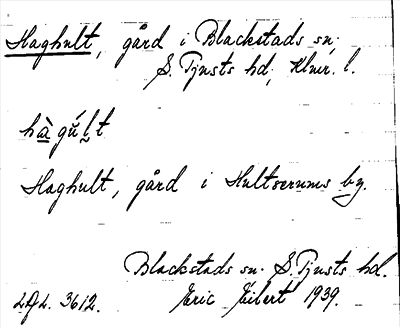 Haghult, gård i Blackstads sn;
S. Tjusts hd; Klmr. l.
hàgúlt
Haghult, gård i Hultserums by.
Blackstads sn. S. Tjusts hd.
Eric Eilert 1939.